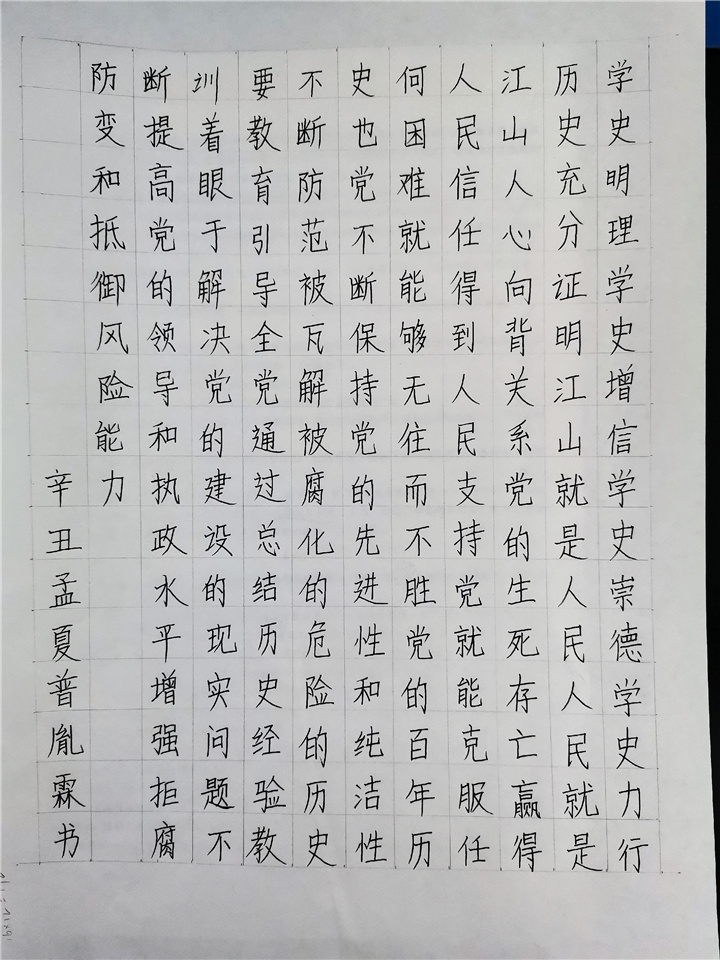 学史明理学史增信学史崇德学史力行
历史充分证明江山就是人民人民就是
江山人心向背关系党的生死存亡赢得
人民信任得到人民支持党就能克服任
何困难就能够无往而不胜党的百年历
史也党不断保持党的先进性和纯洁性
不断防范被瓦解被腐化的危险的历史
要教育引导全党通过总结历史经验教
训着眼于解决党的建设的现实问题不
断提高党的领导和执政水平增强拒腐
防变和抵御风险能力
辛丑孟夏普胤霖书